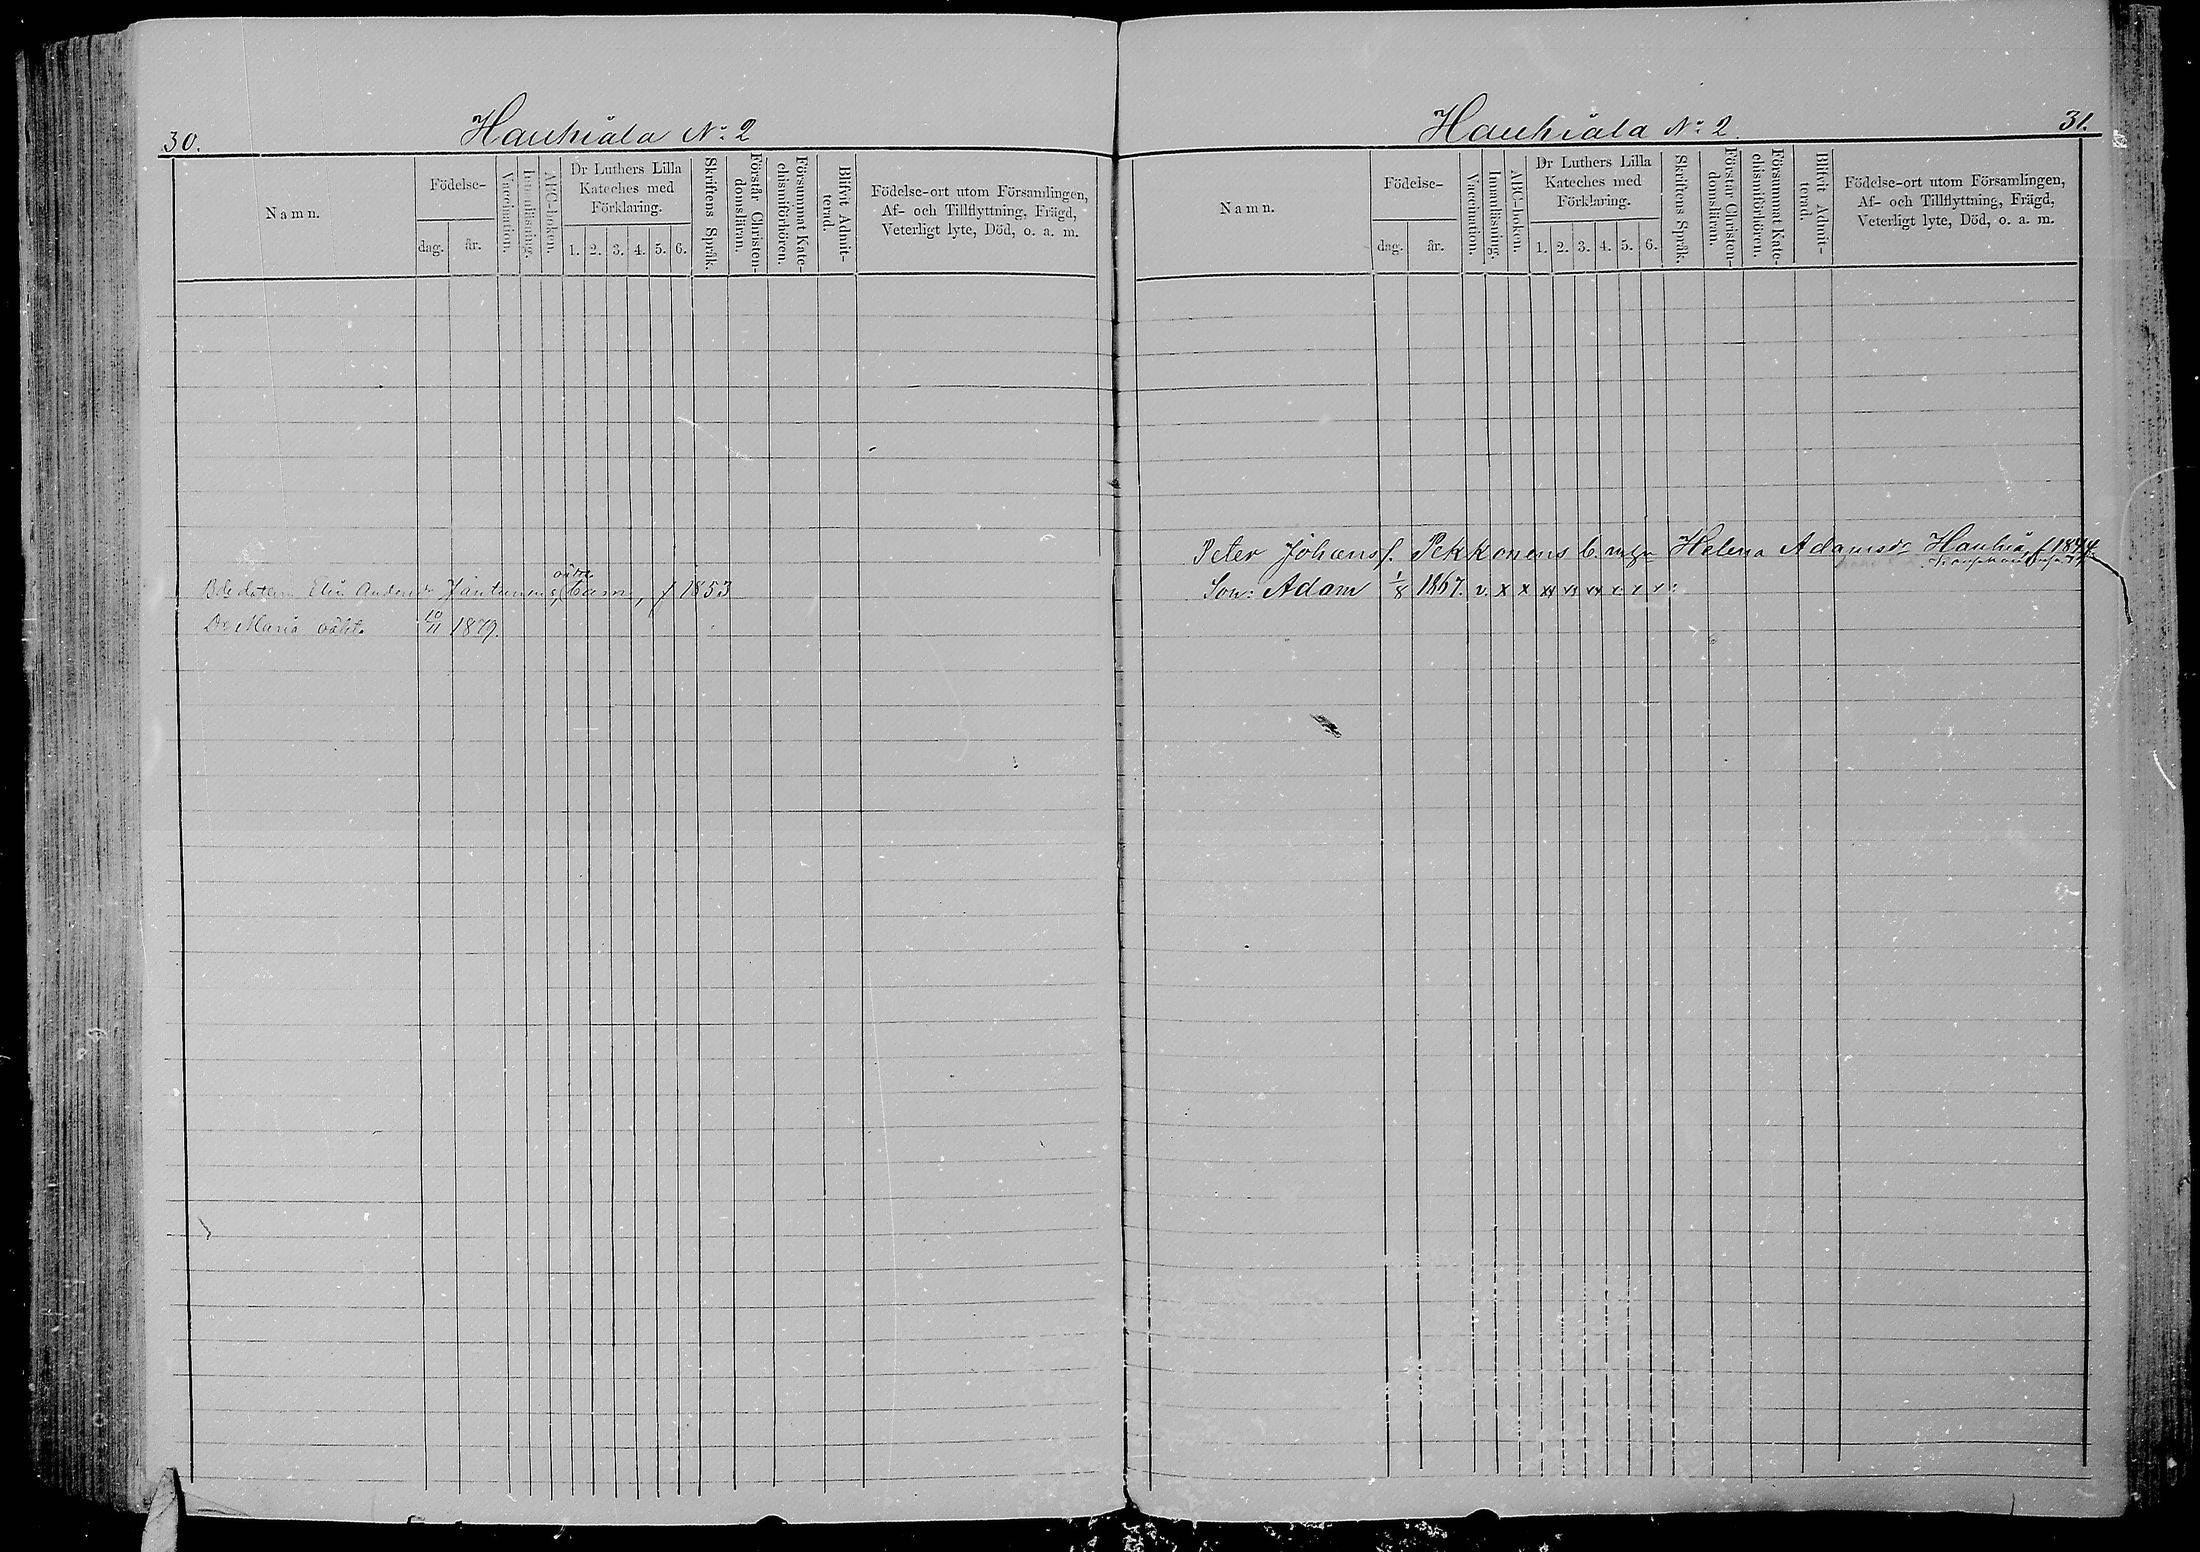 30.
Hauhiala No 2
Namn.
Födelse-
dag.
år.
Vaccination.
Innanläsning.
ABC-boken.
Dr Luthers Lilla
Kateches med
Förklaring.
1. 2. 3. 4. 5. 6.
Skriftens Språk.
Förstår Christen-
domsläran.
Försummat Kate-
chismiförhören.
Blifvit Admit-
terad.
Födelse-ort utom Församlingen,
Af- och Tillflyttning, Frägd,
Veterligt lyte, Död, o. a. m.
oäkta
Anders Jäntunens barn, f 1853
Dr Maria oäkta 10/11 1879.
Hauhiala No 2.
31.
Namn.
Födelse-
dag.
år.
Vaccination.
Innanläsning.
ABC-boken.
Dr Luthers Lilla
Kateches med
Förklaring.
1. 2. 3. 4. 5. 6.
Skriftens Språk.
Förstår Christen-
domsläran.
Försummat Kate-
chismiförhören.
Blifvit Admit-
terad.
Födelse-ort utom Församlingen,
Af- och Tillflyttning, Frägd,
Veterligt lyte, Död, o. a. m.
Peter Johans f. Pekkonens Helena Adamsdr f 1844
Son: Adam 1/8 1867. v. x x xx xx xx x x x